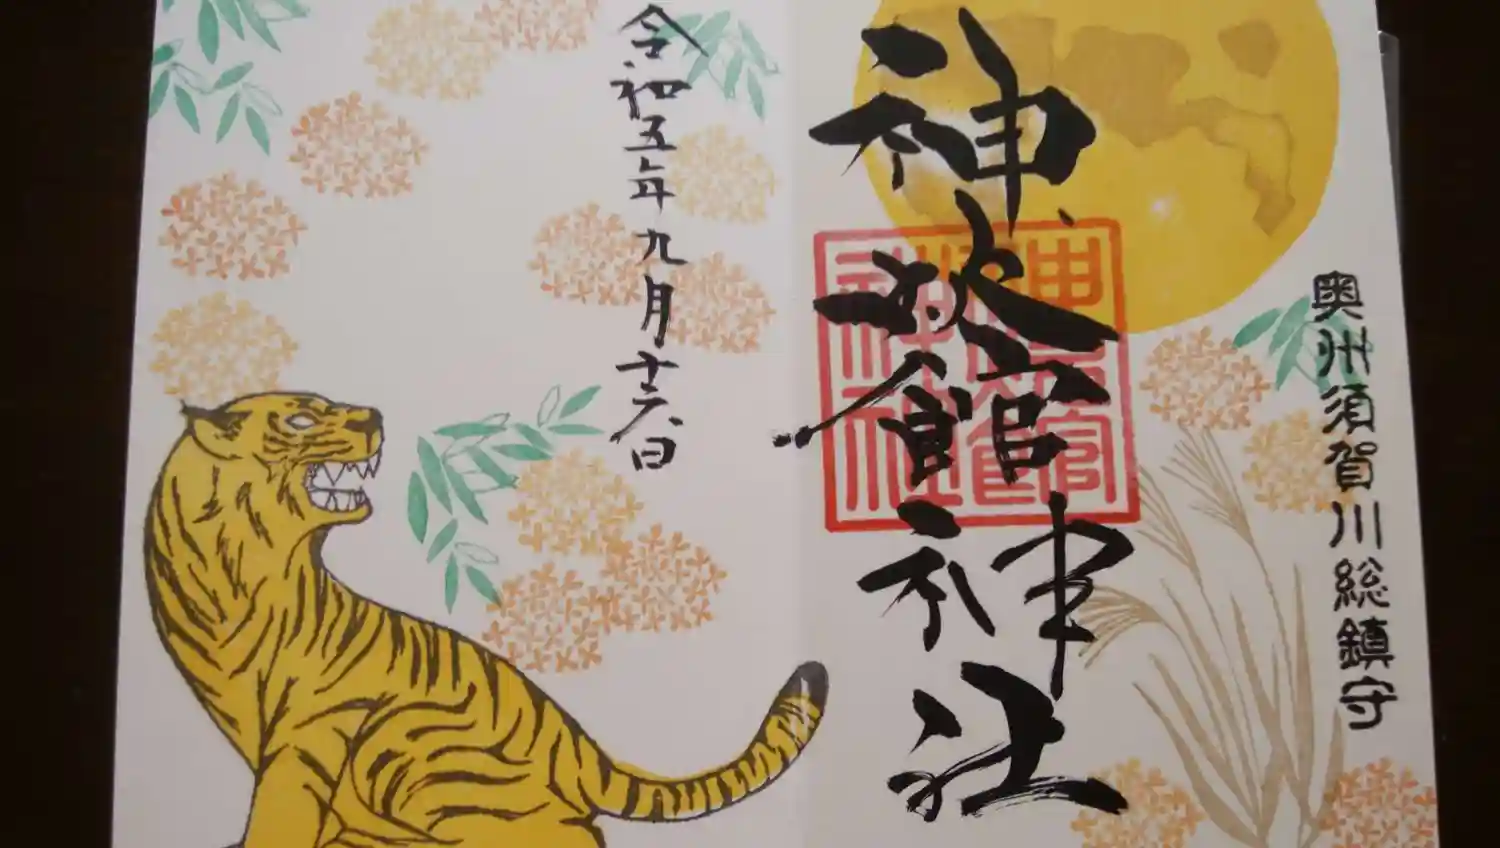 奥州須賀川総鎮守
神炊館神社
令和五年九月十六日
神炊館神社